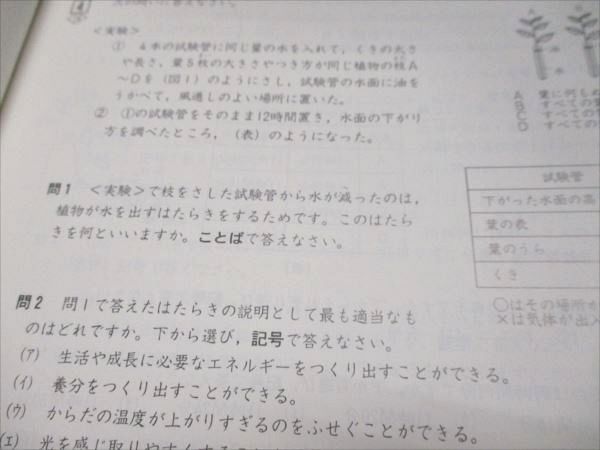 4
<実験>
① 4本の試験管に同じ量の水を入れて，くきの太さ
や長さ，葉5枚の大きさやつき方が同じ植物の枝A
～Dを(図1)のようにさし，試験管の水面に油を
うかべて，風通しのよい場所に置いた。
② ①の試験管をそのまま12時間置き，水面の下がり
方を調べたところ，(表)のようになった。
問1 <実験>で枝をさした試験管から水が減ったのは，
植物が水を出すはたらきをするためです。このはたら
きを何といいますか。ことばで答えなさい。
問2 問1で答えたはたらきの説明として最も適当なも
のはどれですか。下から選び，記号で答えなさい。
(ア) 生活や成長に必要なエネルギーをつくり出すことができる。
(イ) 養分をつくり出すことができる。
(ウ) からだの温度が上がりすぎるのをふせぐことができる。
(エ) 光を感じ取りやすくする
A 葉に何も
B すべての
C すべての
D すべての
試験管
下がった水面の高
葉の表
葉のうら
くき
○はその場所か
×は気体が出入